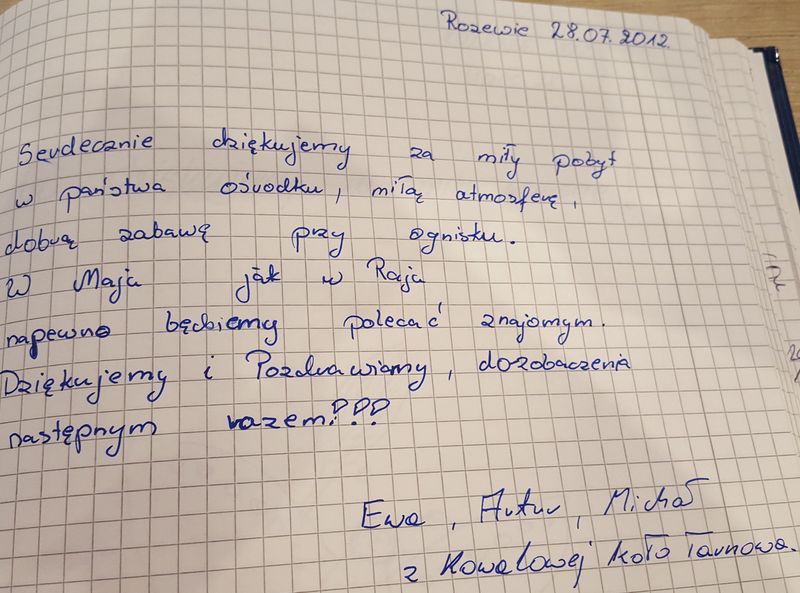 Rozewie 28.07.2012
Serdecznie dziękujemy za miły pobyt
w państwa ośrodku, miłą atmosferę,
dobrą zabawę przy ognisku.
W Maju jak w Raju
napewno będziemy polecać znajomym.
Dziękujemy i Pozdrawiamy, dozobaczenia
następnym razem???
Ewa, Artur, Michał
z Kowalowej koło Tarnowa.